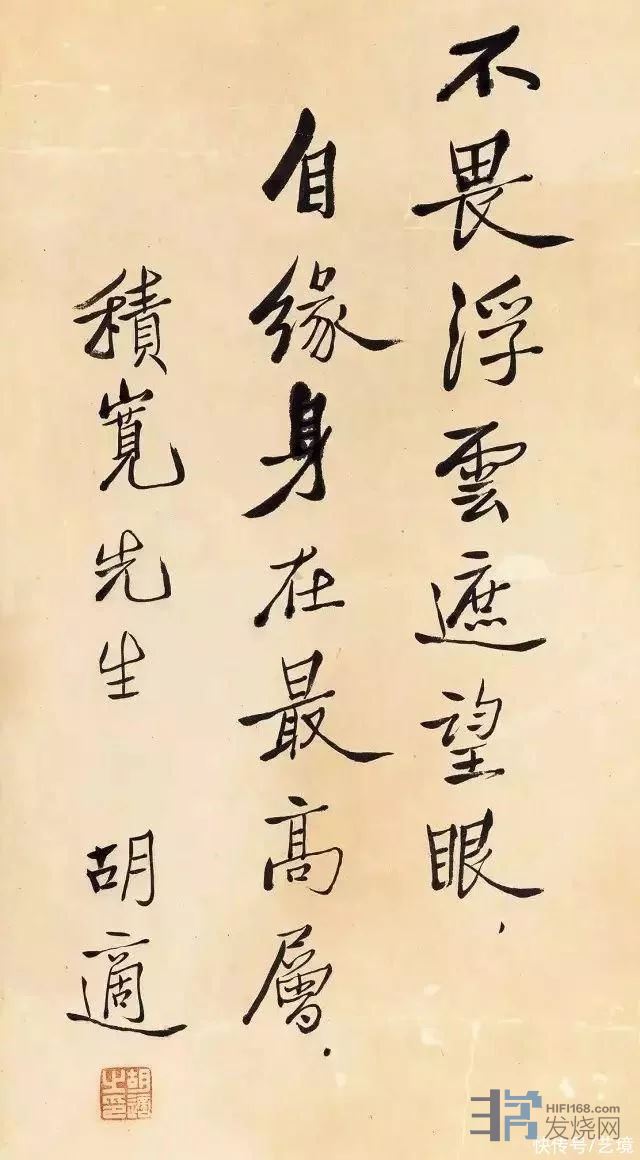 不畏浮雲遮望眼，
自緣身在最高層．
積寬先生 胡適
胡適之印
HIFI168.com
发烧网
快传号/艺境